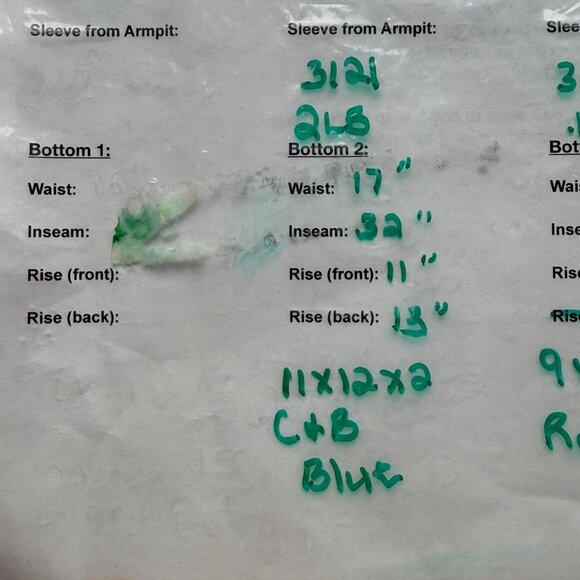 Sleeve from Armpit:
Bottom 1:
Waist:
Inseam:
Rise (front):
Rise (back):
Sleeve from Armpit:
3121
2LB
Bottom 2:
Waist: 17"
Inseam: 32"
Rise (front): 11"
Rise (back): 13"
11x12x2
C&B
Blue
Slee
3
Bot
Wai
Inse
Rise
Rise
9
R